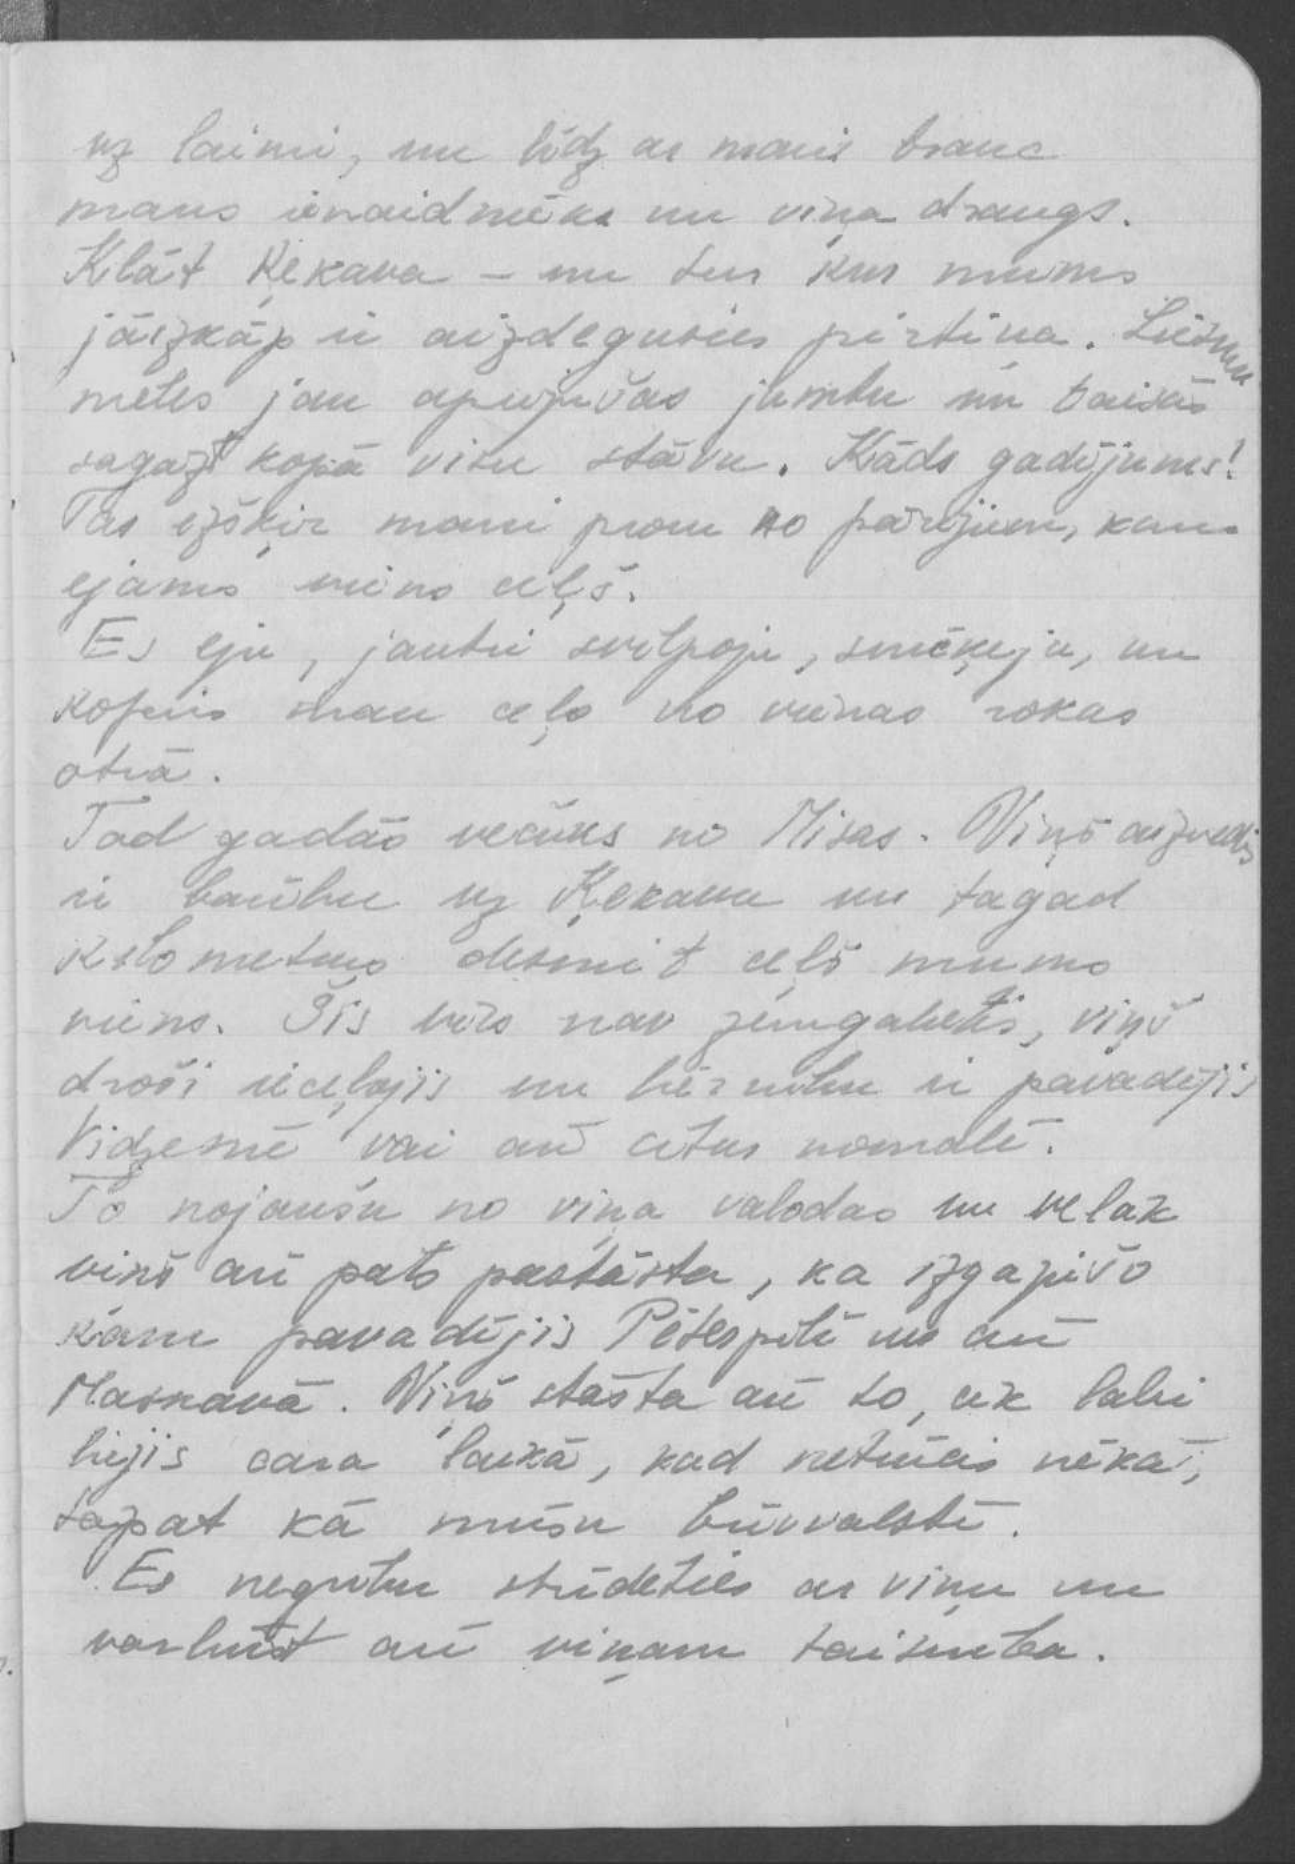 uz laimi, un līdz ar mani brauc
mans ienaidnieks un viņa draugs.
Klāt Ķekava – un tur kur mums
jāizkāp ir aizdegusies pirtiņa. Liesmu
mēles jau apņēmušas jumtu un taisās
sagāzt kopā visu stāvu. Kāds gadījums!
Tas izšķir mani prom no pārējiem, kam
ejams viens ceļš.
Es eju, jautri svilpoju, smēķēju, un
koferis man ceļo no vienas rokas
otrā.
Tad gadās večuks no Misas. Viņš aizvedis
ir baļķu uz Ķekavu un tagad
kilometrus desmit ceļš mums
viens. Šis vīrs nav zemgalietis, viņš
droši ieceļojis un bērnību ir pavadījis
Vidzemē vai arī citur nomalē.
To nojaušu no viņa valodas un vēlāk
viņš arī pats pastāsta, ka izgājušo
karu pavadījis Pēterpilī un arī
Maskavā. Viņš stāsta arī to, cik labi
bijis cara laikā, kad netrūcis nekā,
tāpat kā mūsu brīvvalstī.
Es negribu strīdēties ar viņu un
varbūt arī viņam taisnība.